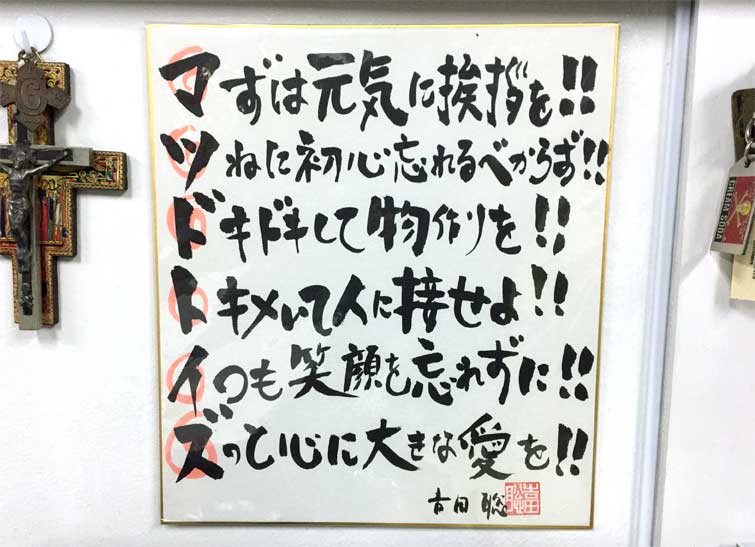 マずは元気に挨拶を!!
ツねに初心忘れるべからず!!
ドキドキして物作りを!!
トキメいて人に接せよ!!
イつも笑顔を忘れずに!!
ズっと心に大きな愛を!!
吉田 聡
CREAM SODA
6